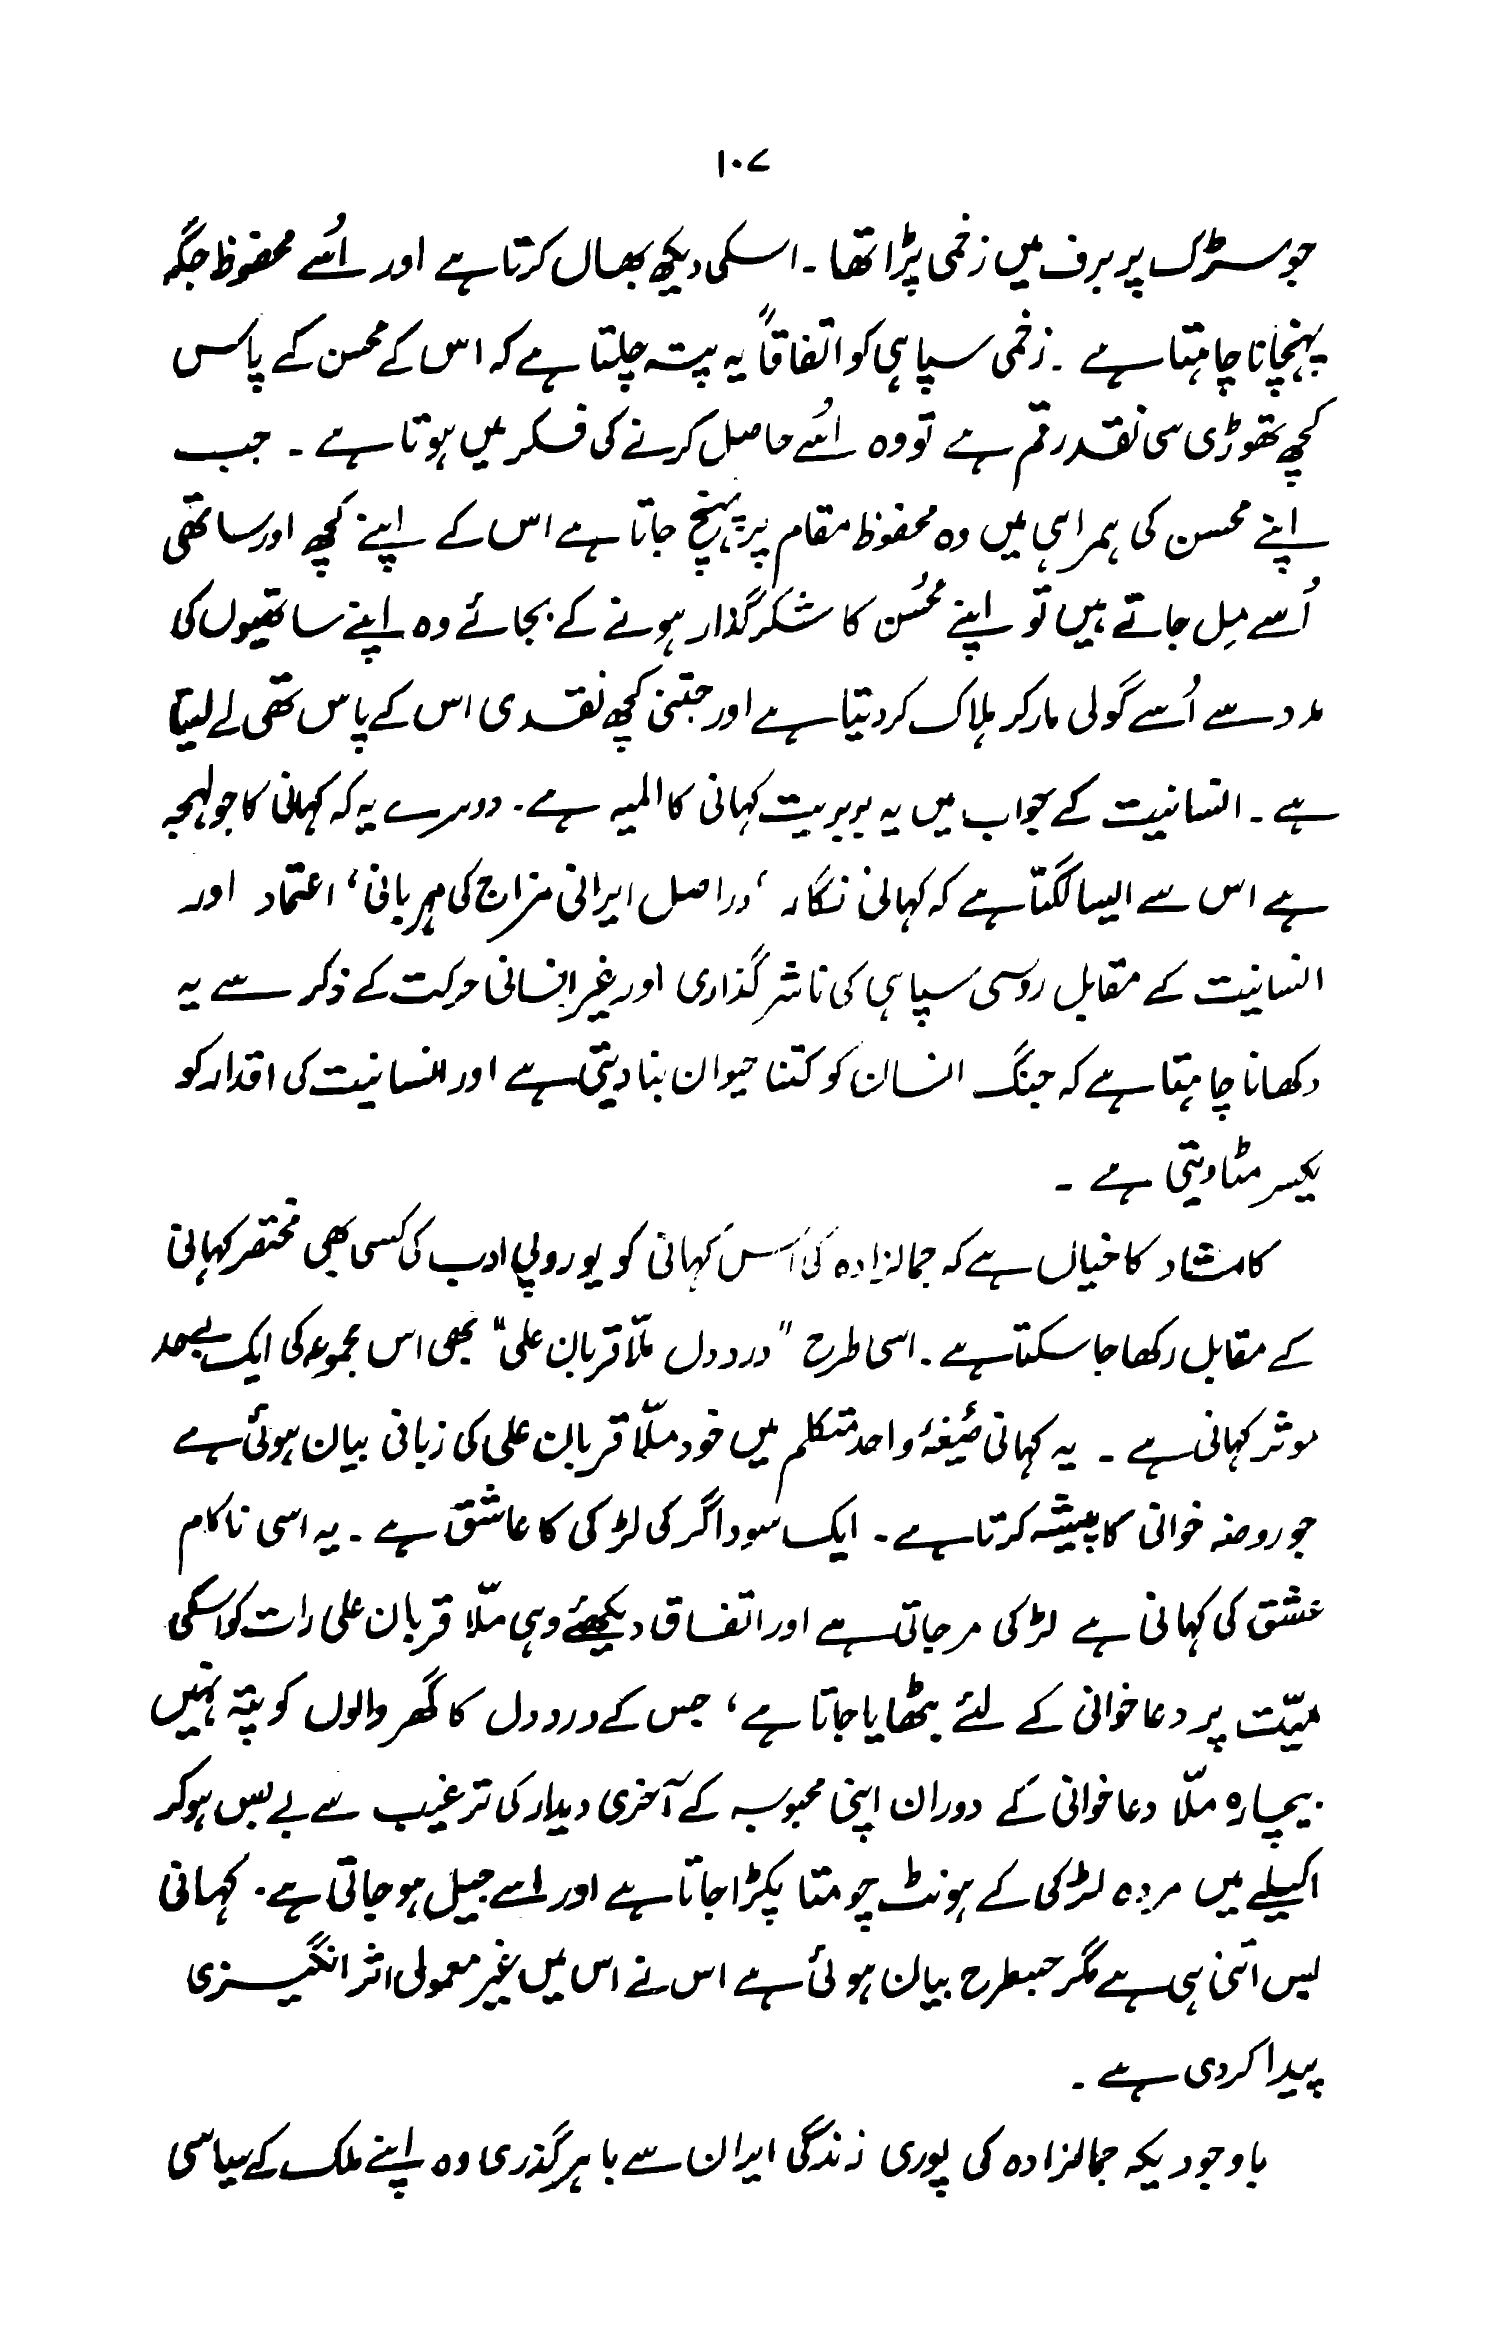 ۱۰۷
جو سڑک پر برف میں زخمی پڑا تھا ۔ اسکی دیکھ بھال کرتا ہے اور اُسے محفوظ جگہ
پہنچانا چاہتا ہے ۔ زخمی سپاہی کو اتفاقاً یہ پتہ چلتا ہے کہ اس کے محسن کے پاس
کچھ تھوڑی سی نقد رقم ہے تو وہ اُسے حاصل کرنے کی فکر میں ہوتا ہے ۔ جب
اپنے محسن کی ہمراہی میں وہ محفوظ مقام پر پہنچ جاتا ہے اس کے اپنے کچھ اور ساتھی
اُسے مِل جاتے ہیں تو اپنے محُسن کا شکر گذار ہونے کے بجائے وہ اپنے ساتھیوں کی
مدد سے اُسے گولی مار کر ہلاک کر دیتا ہے اور جتنی کچھ نقدی اس کے پاس تھی لے لیتا
ہے ۔ انسانیت کے جواب میں یہ بربریت کہانی کا المیہ ہے ۔ دوسرے یہ کہ کہانی کا جو لہجہ
ہے اس سے ایسا لگتا ہے کہ کہانی نگار ، دراصل ایرانی مزاج کی مہربانی ، اعتماد اور
انسانیت کے مقابل روسی سپاہی کی ناشکر گذاری اور غیر انسانی حرکت کے ذکر سے یہ
دکھانا چاہتا ہے کہ جنگ انسان کو کتنا حیوان بنا دیتی ہے اور انسانیت کی اقدار کو
یکسر مٹا دیتی ہے ۔
کامشاد کا خیال ہے کہ جمالزادہ کی اس کہانی کو یوروپی ادب کی کسی بھی مختصر کہانی
کے مقابل رکھا جا سکتا ہے ۔ اسی طرح " درد دل ملّا قربان علی" بھی اس مجموعہ کی ایک بے حد
موثر کہانی ہے ۔ یہ کہانی صیغۂ واحد متکلم میں خود ملّا قربان علی کی زبانی بیان ہوئی ہے
جو روضہ خوانی کا پیشہ کرتا ہے ۔ ایک سوداگر کی لڑکی کا عاشق ہے ۔ یہ اسی ناکام
عشق کی کہانی ہے لڑکی مر جاتی ہے اور اتفاق دیکھئے وہی ملّا قربان علی رات کو اسکی
میّت پر دعا خوانی کے لئے بٹھایا جاتا ہے ، جس کے درد دل کا گھر والوں کو پتہ نہیں
بیچارہ ملّا دعا خوانی کے دوران اپنی محبوبہ کے آخری دیدار کی ترغیب سے بے بس ہو کر
اکیلے میں مردہ لڑکی کے ہونٹ چومتا پکڑا جاتا ہے اور اسے جیل ہو جاتی ہے ۔ کہانی
بس اتنی ہی ہے مگر جسطرح بیان ہوئی ہے اس نے اس میں غیر معمولی اثر انگیزی
پیدا کر دی ہے ۔
باوجودیکہ جمالزادہ کی پوری زندگی ایران سے باہر گذری وہ اپنے ملک کے سیاسی